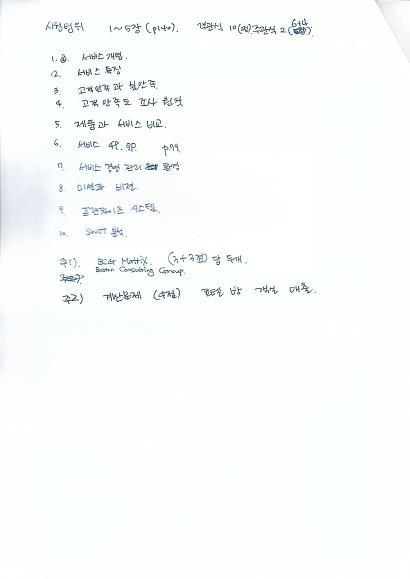 시험범위 1~5장 (p140). 객관식 10(맨)주관식 2(6+4).
1. 서비스 개념.
2. 서비스 특징
3. 고객만족과 불만족.
4. 고객만족도 조사 원칙
5. 제품과 서비스 비교.
6. 서비스 4P. 9P. p.99
7. 서비스 경영 관리 환경
8. 미션과 비전.
9. 프랜차이즈 시스템.
10. SWOT 분석.
주1). BCG Matrix. (3+3점) 답 두개.
Boston Consulting Group.
주2) 계산문제 (4점) 호텔 방 객실 매출.